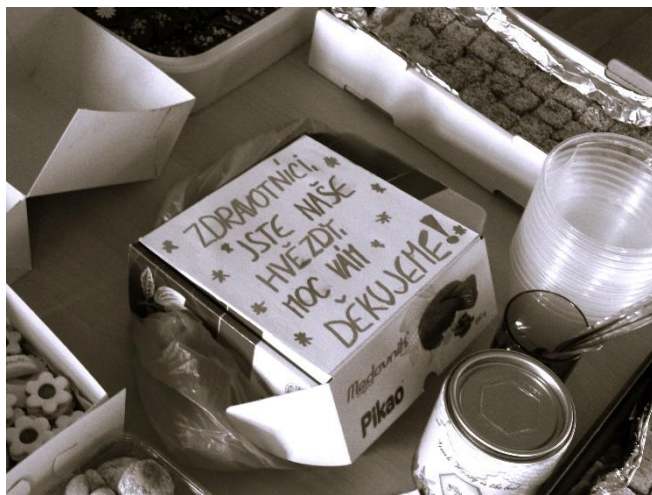 ZDRAVOTNÍCI,
JSTE NAŠE
HVĚZDY.
MOC VÁM
DĚKUJEME!
Medovník
Pikao